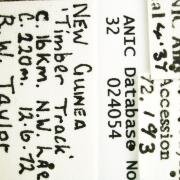 NEW GUINEA
'Timber Track'
C. 16km. N.W. LAE
C. 220m. 12.6.72
R.W. Taylor
ANIC Database No
32 024054
ANIC
Accession
72.193